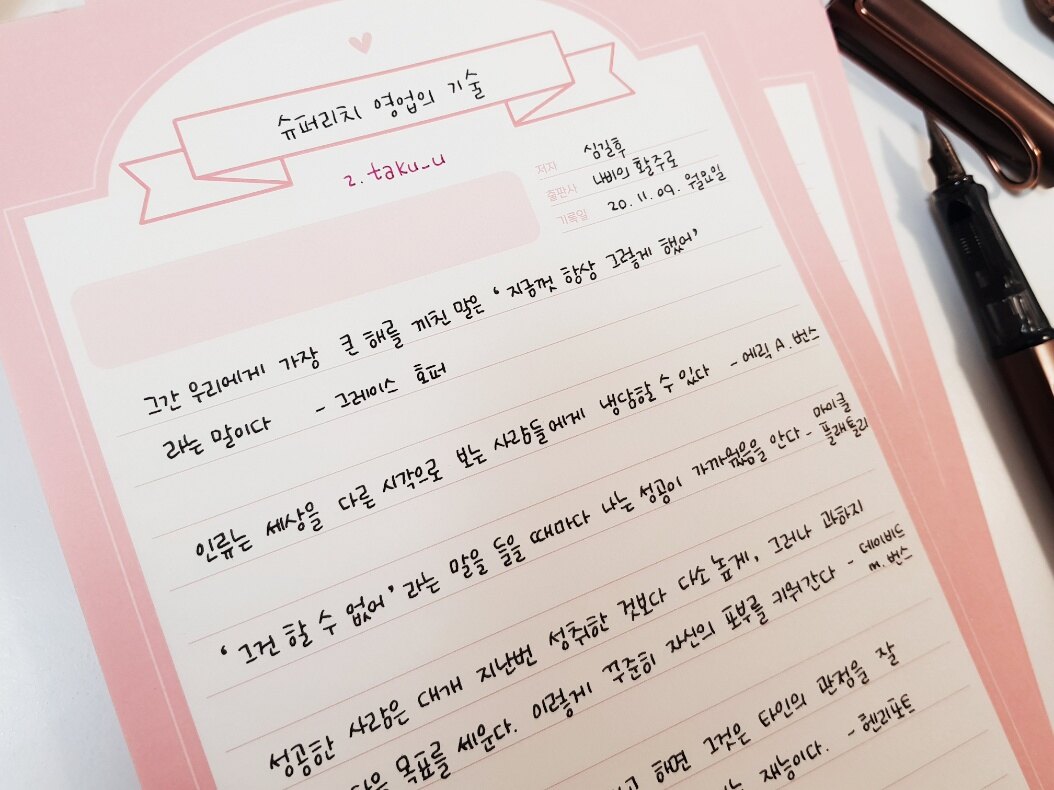 슈퍼리치 영업의 기술
2. taku_u
저자 심길후
출판사 나비의 활주로
기록일 20. 11. 09. 월요일
그간 우리에게 가장 큰 해를 끼친 말은 ‘지금껏 항상 그렇게 했어’
라는 말이다 - 그레이스 호퍼
인류는 세상을 다른 시각으로 보는 사람들에게 냉담할 수 있다 - 에릭 A. 번스
‘그건 할 수 없어’ 라는 말을 들을 때마다 나는 성공이 가까워졌음을 안다 - 마이클
플래틀리
성공한 사람은 대개 지난번 성취한 것보다 다소 높게, 그러나 과하지
목표를 세운다. 이렇게 꾸준히 자신의 포부를 키워간다 - 데이비드
m. 번스
해면 그것은 타인의 관점을 잘
재능이다. - 헨리포드